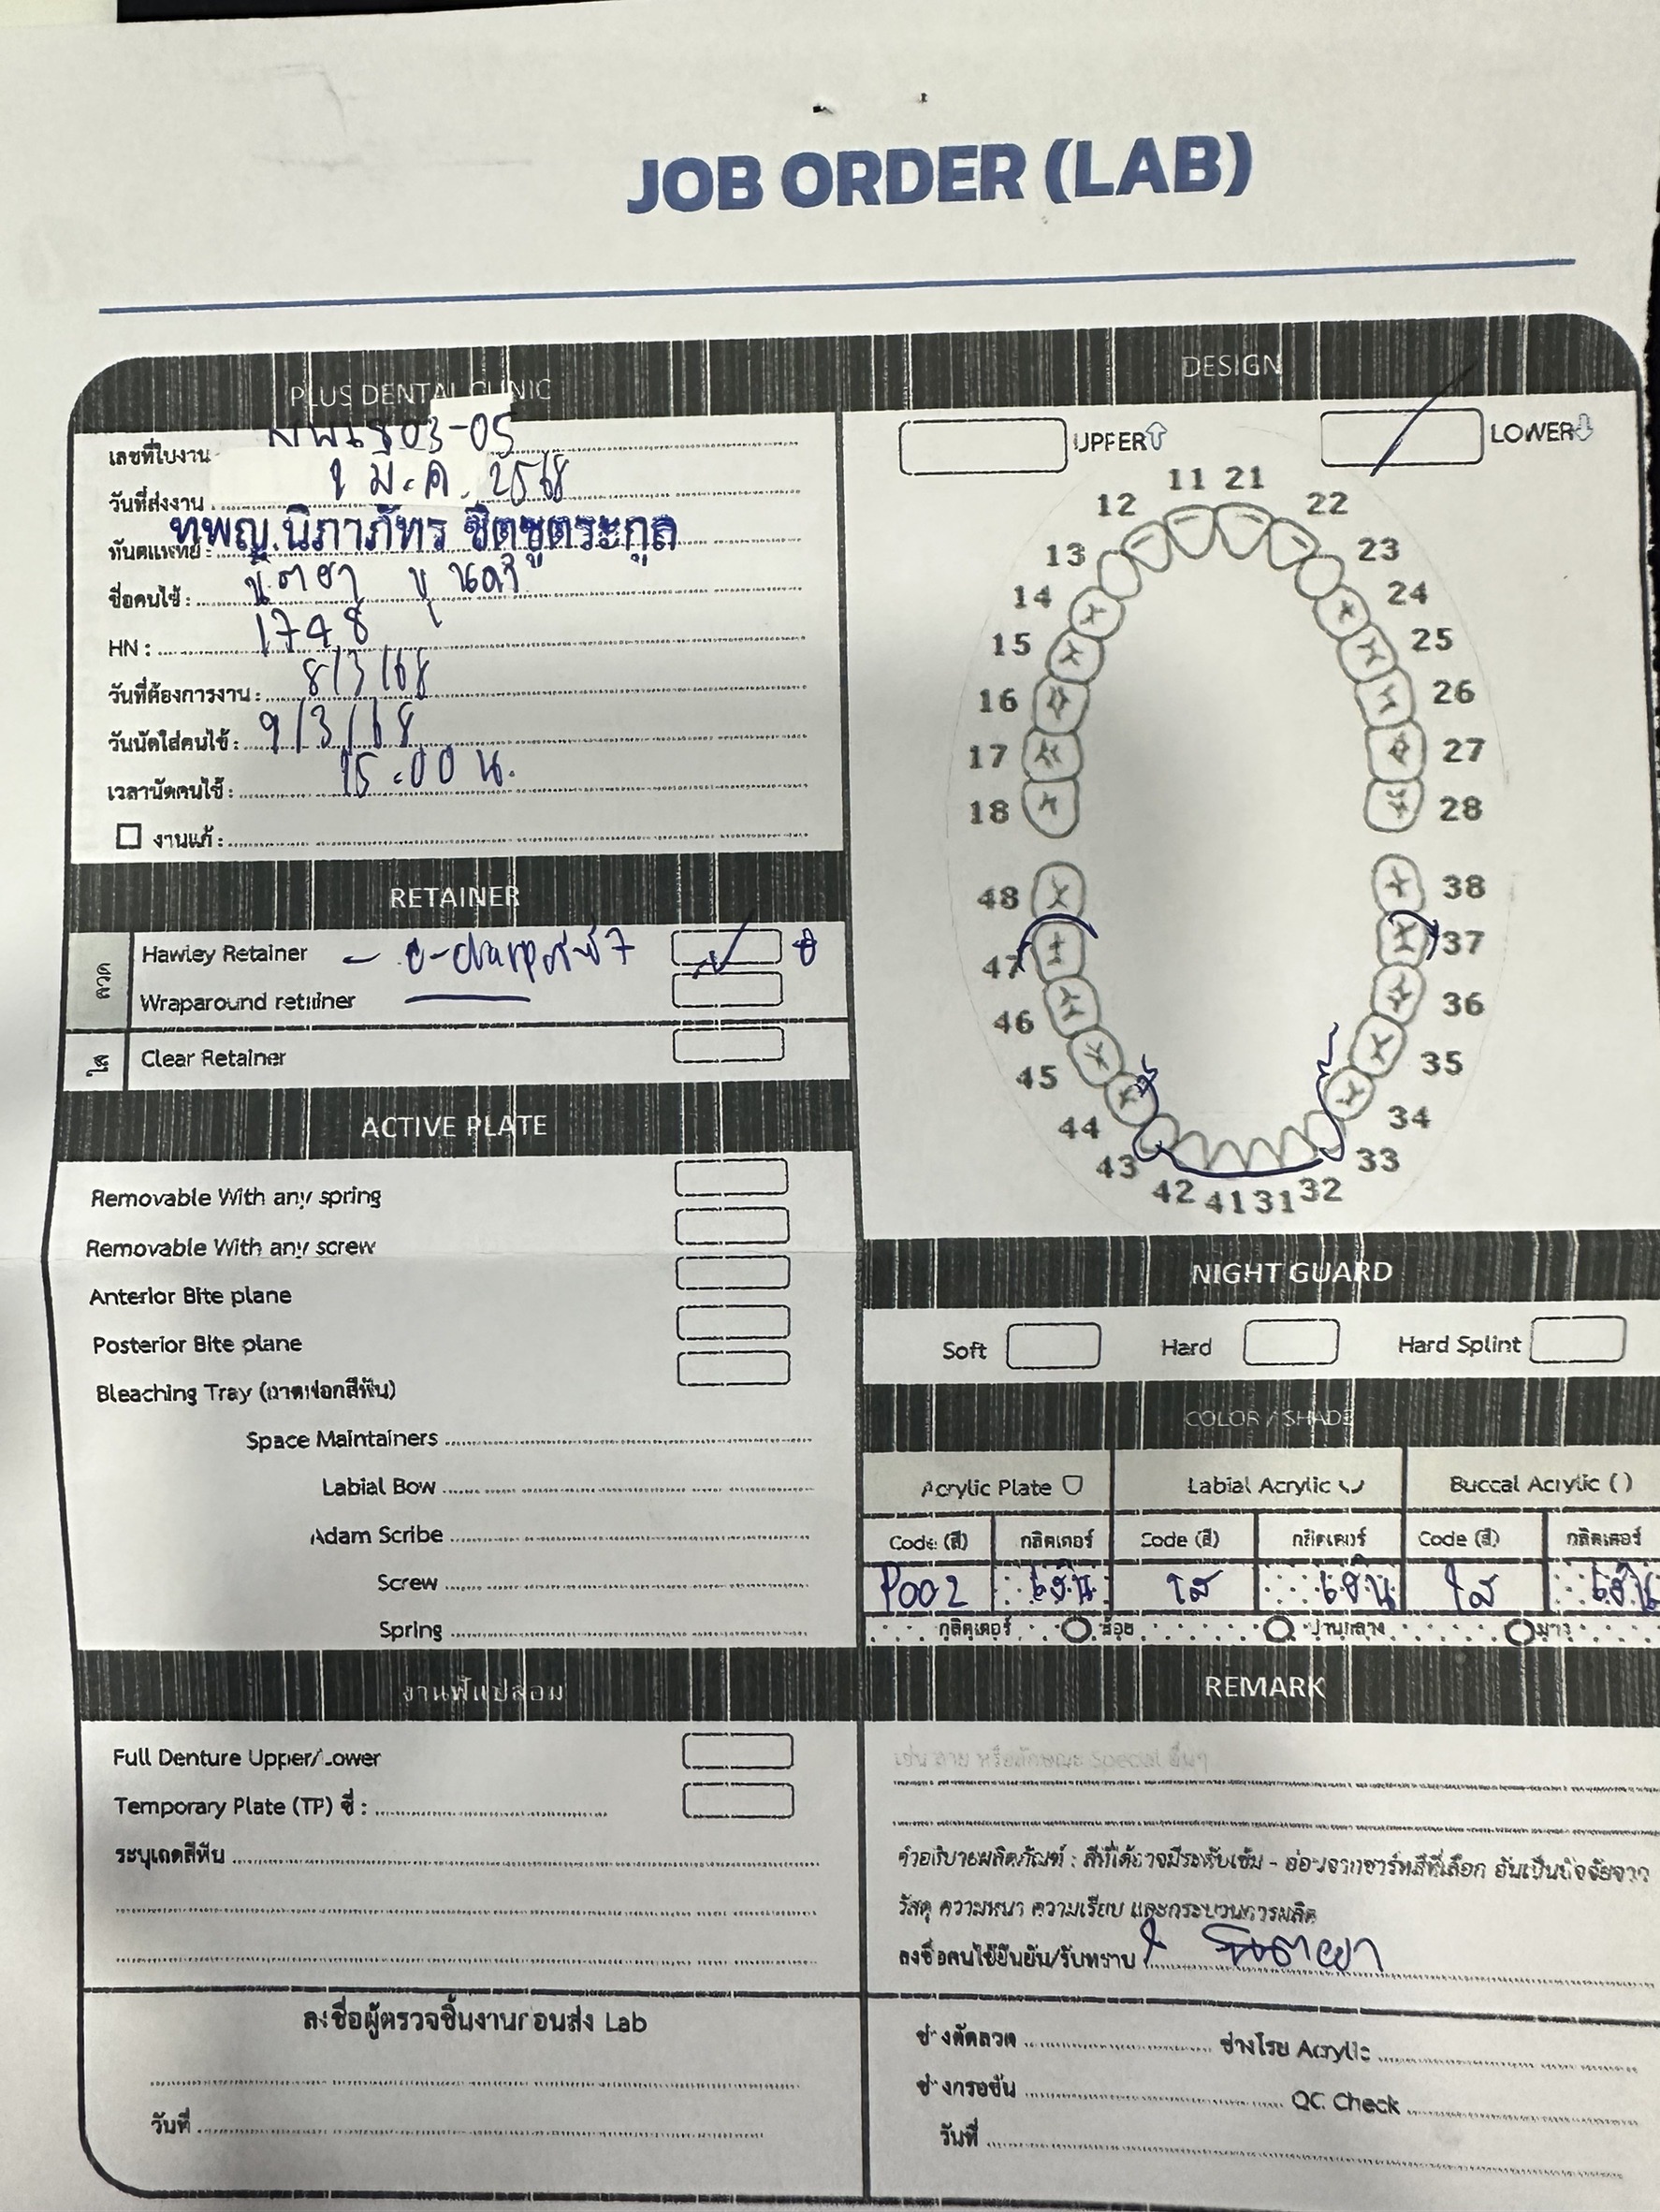 JOB ORDER (LAB)
PLUS DENTAL CLINIC
เลขที่ใบงาน 03-05
วันที่ส่งงาน 1 มี.ค. 2568
ทันตแพทย์ : ทพญ.นิภาภัทร ชิตชูตระกูล
ชื่อคนไข้ :
HN : 1748
วันที่ต้องการงาน : 8/3/68
วันนัดใส่คนไข้ : 9/3/68
เวลานัดคนไข้ : 15.00 น.
งานแก้ :
RETAINER
ลวด
Hawley Retainer
Wraparound retainer
ใส
Clear Retainer
ACTIVE PLATE
Removable With any spring
Removable With any screw
Anterior Bite plane
Posterior Bite plane
Bleaching Tray (ถาดฟอกสีฟัน)
Space Maintainers
Labial Bow
Adam Scribe
Screw
Spring
งานฟันปลอม
Full Denture Upper/Lower
Temporary Plate (TP) ซี่ :
ระบุเฉดสีฟัน
ลงชื่อผู้ตรวจชิ้นงานก่อนส่ง Lab
วันที่
DESIGN
UPPER LOWER
11 21
12 22
13 23
14 24
15 25
16 26
17 27
18 28
48 38
47 37
46 36
45 35
44 34
43 33
42 41 31 32
NIGHT GUARD
Soft Hard Hard Splint
COLOR / SHADE
Acrylic Plate Labial Acrylic Buccal Acrylic ( )
Code (สี) กลิตเตอร์ Code (สี) กลิตเตอร์ Code (สี) กลิตเตอร์
P002 ใส ใส
กลิตเตอร์ น้อย ปานกลาง มาก
REMARK
เช่น ลาย หรือลักษณะ Special อื่นๆ
คำอธิบายผลิตภัณฑ์ : สีที่ได้อาจมีระดับเข้ม - อ่อนจากชาร์ทสีที่เลือก อันเป็นปัจจัยจาก
วัสดุ ความหนา ความเรียบ และกระบวนการผลิต
ลงชื่อคนไข้ยืนยัน/รับทราบ
ช่างดัดลวด ช่างโรย Acrylic
ช่างกรอขัด QC Check
วันที่